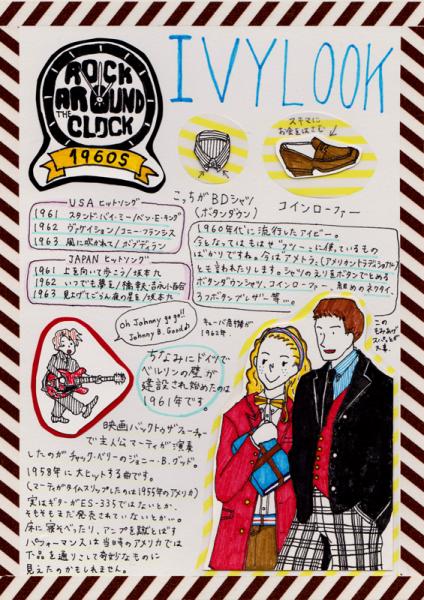 IVY LOOK
ROCK
AROUND
THE
CLOCK
1960S
ステマに
お金をはさむ
こっちがBDシャツ
(ボタンダウン)
コインローファー
USA ヒットソング
1961 スタンド・バイ・ミー/ベン・E・キング
1962 ヴァケイション/コニー・フランシス
1963 風に吹かれて/ボブ・ディラン
JAPAN ヒットソング
1961 上を向いて歩こう/坂本九
1962 いつでも夢を/橋幸夫・吉永小百合
1963 見上げてごらん夜の星を/坂本九
1960年代に流行したアイビー。
今もなってはもはや
ばかりですね。今はアメトラ、(アメリカントラディショナル)
とも言われたりします。シャツのえりをボタンでとめる
ボタンダウンシャツ、コインローファー、細めのネクタイ、
3つボタンブレザー等…。
Oh Johnny go go!!
Johnny B. Good♪
キューバ危機が
1962年。
ちなみにドイツで
ベルリンの壁が
建設され始めたのは
1961年です。
この
もみあげ
大事。
映画バックトゥザフューチャー
で主人公マーティが演奏
したのがチャック・ベリーのジョニー・B・グッド。
1958年に大ヒットする曲です。
(マーティがタイムスリップしたのは1955年のアメリカ)
実はギターがES-335ではないとか、
そもそもまだ発売されていないとか…。
床に寝そべったり、アンプを蹴とばす
パフォーマンスは当時のアメリカでは
下品を通りこして奇妙なものに
見えたのかもしれません。